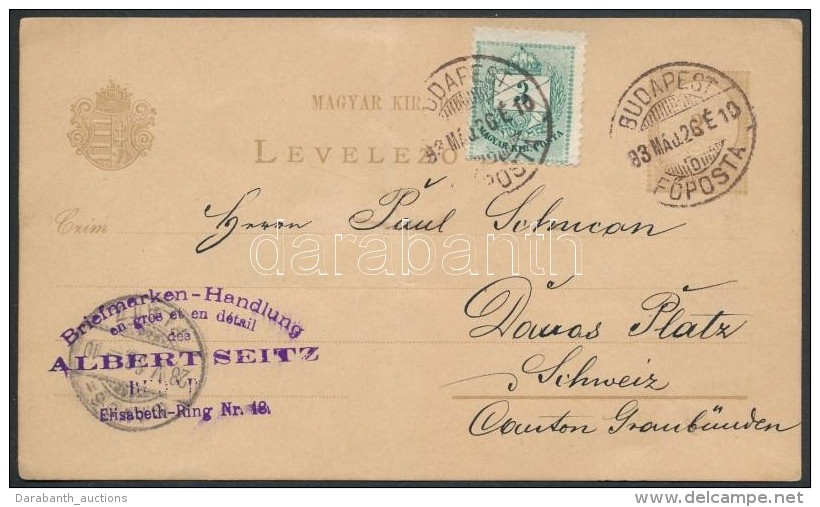 MAGYAR KIR.
LEVELEZŐ
3
MAGYAR KIR. POSTA
BUDAPEST
93 MÁJ. 26 É 10
FŐPOSTA
BUDAPEST
93 MÁJ. 26 É 10
FŐPOSTA
Czim
Herrn Paul Schucan
Davos Platz
Schweiz
Canton Graubünden
Briefmarken-Handlung
en gros et en détail
des
ALBERT SEITZ
Elisabeth-Ring Nr. 48.
28 V
darabanth
Darabanth_auctions
delcampe.net